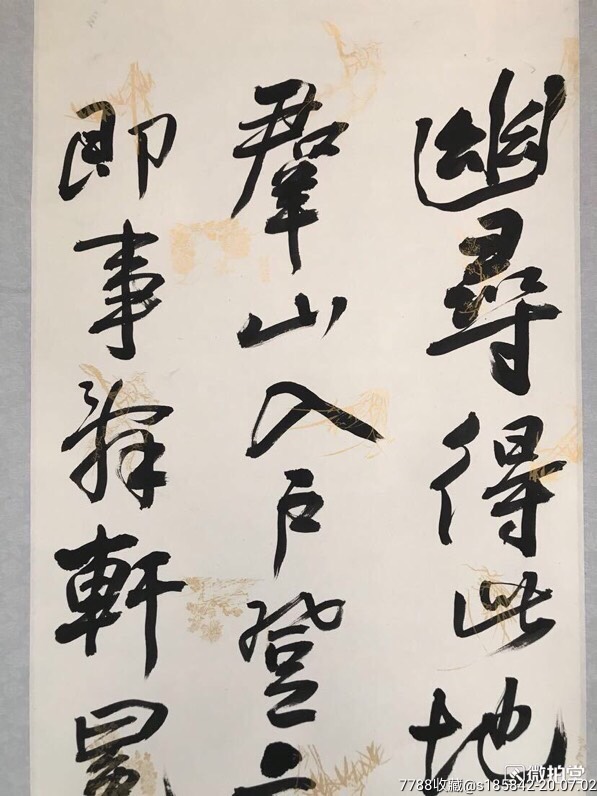 幽尋得此地
羣山入户登
即事辭軒冕
微拍堂
7788收藏@s185842-20.07.02